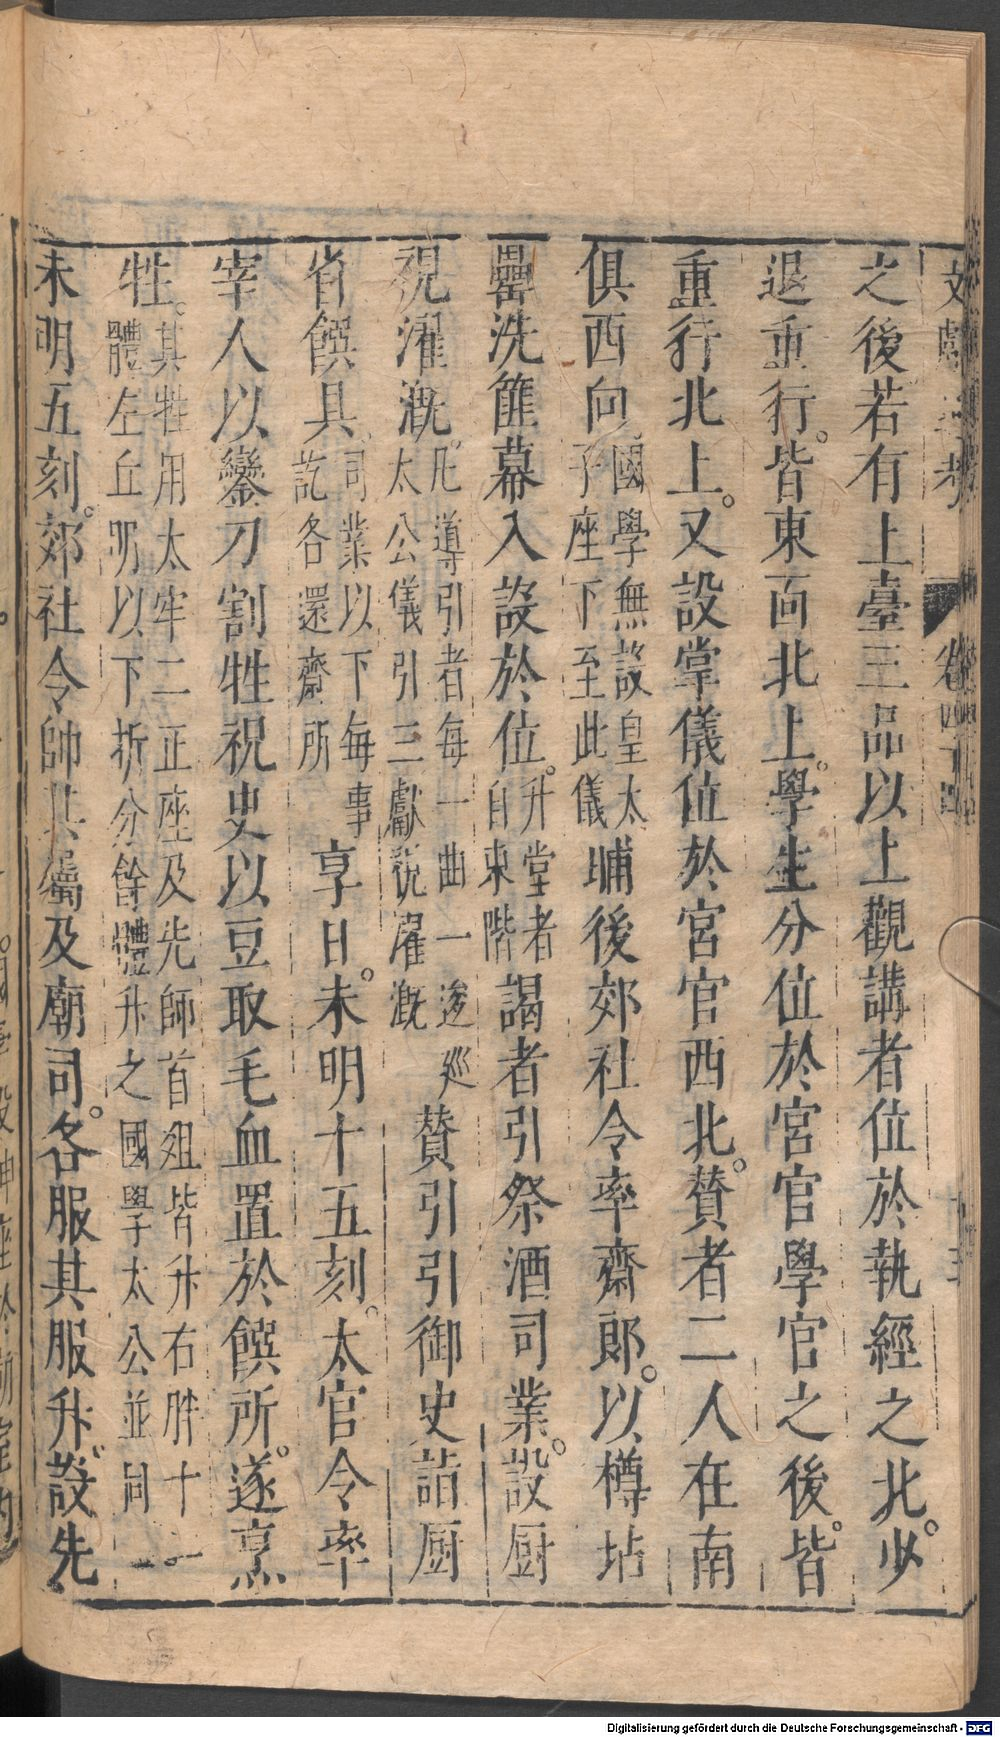 文獻通考 卷四十四
之後若有上臺三品以上觀講者位於執經之北少
退重行皆東面北上學生分位於宮官學官之後皆
重行北上又設掌儀位於宮官西北贊者二人在南
俱西向國學無設皇太子座下至此儀晡後郊社令率齋郎以樽坫
罍洗篚冪入設於位升堂者自東階謁者引祭酒司業設厨
視濯溉凡導引者每一曲一逡巡太公儀引三獻視濯溉贊引引御史詣厨
省饌具司業以下每事訖各還齋所享日未明十五刻太官令率
宰人以鑾刀割牲祝史以豆取毛血置於饌所遂烹
牲其牲用太牢二正座及先師首俎皆升右胖十一體左丘明以下折分餘體升之國學太公並同
未明五刻郊社令帥其屬及廟司各服其服升設先
Digitalisierung gefördert durch die Deutsche Forschungsgemeinschaft - DFG